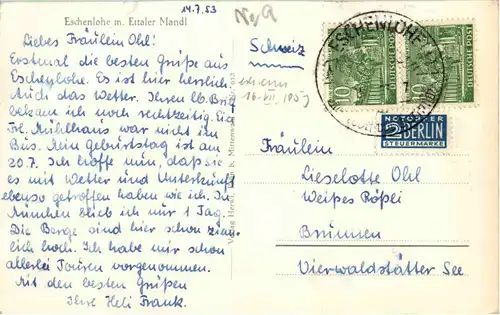 Eschenlohe m. Ettaler Mandl
14.7.53
Liebes Fräulein Ohl!
Erstmal die besten Grüße aus
Eschenlohe. Es ist hier herrlich
Auch das Wetter. Ihren lb. Brief
bekam ich noch rechtzeitig. Ein
Frl. Mühlhaus war nicht im
Büs. Mein Geburtstag ist am
20.7. Ich hoffe nun daß sie
es mit Wetter und Unterkunft
ebenso getroffen haben wie ich. In
München blieb ich nur 1 Tag.
Die Berge sind hier schon ziem-
lich hoch. Ich habe mir schon
allerlei Touren vorgenommen.
Mit den besten Grüßen
Ihre Heli Frank.
Schweiz
16. VII 1953
ESCHENLOHE
10
DEUTSCHE POST
10
DEUTSCHE POST
NOTOPFER
2 BERLIN
STEUERMARKE
Fräulein
Lieselotte Ohl
Weißes Rößli
Brunnen
Vierwaldstätter See